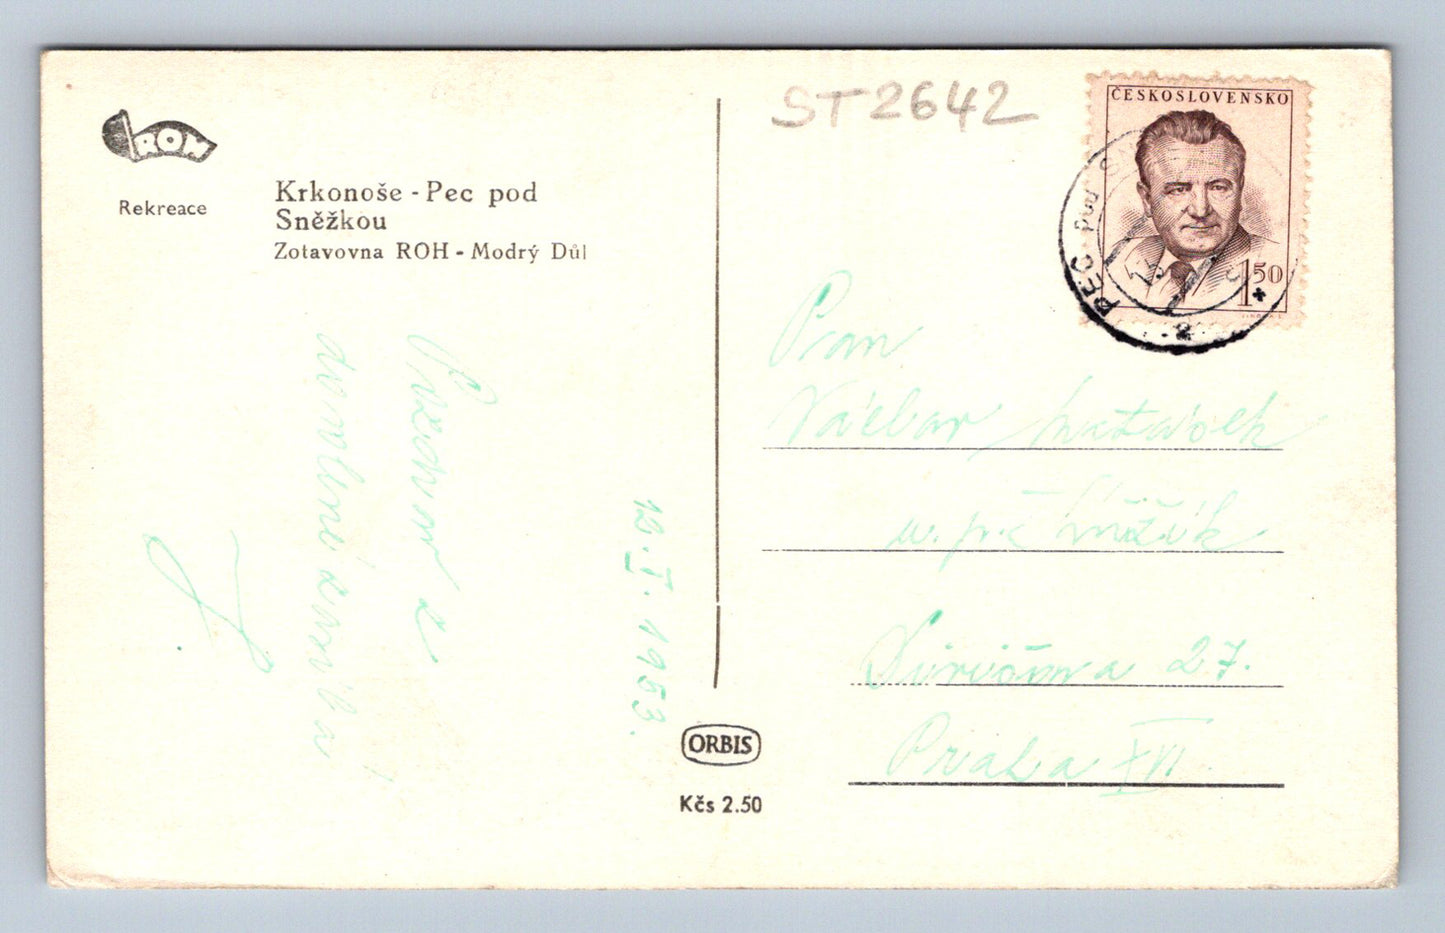 ROH
Rekreace
Krkonoše - Pec pod
Sněžkou
Zotavovna ROH - Modrý Důl
ST2642
ČESKOSLOVENSKO
1.50
PEC pod S
Pozdrav z
dovolené
12.I.1953.
ORBIS
Kčs 2.50
Pan
Václav
u. p.
27.
Praha XVI.